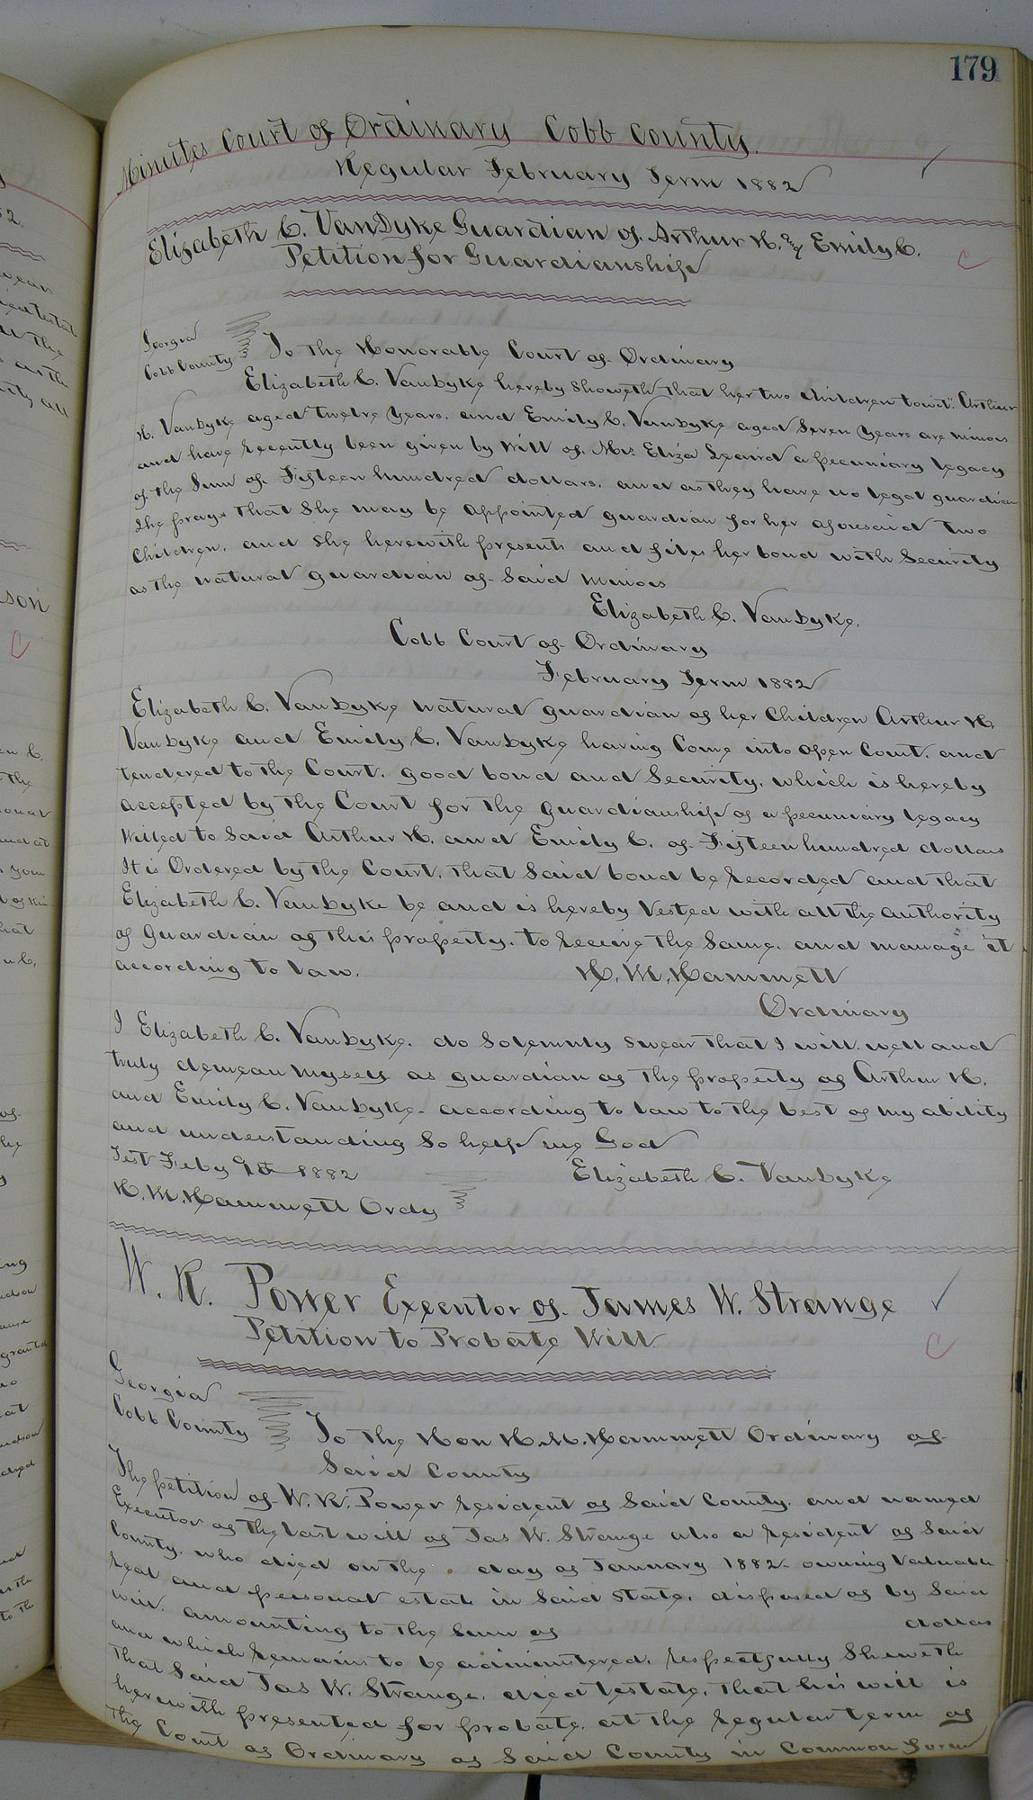 179
Minutes Court of Ordinary Cobb County.
Regular February Term 1882
Elizabeth C. VanDyke Guardian of Arthur H. & Emily C.
Petition for Guardianship
Georgia
Cobb County
To the Honorable Court of Ordinary
Elizabeth C. VanDyke hereby showeth that her two children towit: Arthur
H. VanDyke aged twelve years, and Emily C. VanDyke aged Seven years are minors
and have recently been given by will of Mrs Eliza a pecuniary legacy
of the Sum of Fifteen hundred dollars, and as they have no legal guardian
She prays that She may be appointed guardian for her aforesaid two
Children, and she herewith presents and files her bond with Security
as the natural guardian of Said minors
Elizabeth C. VanDyke.
Cobb Court of Ordinary
February Term 1882
Elizabeth C. VanDyke natural guardian of her children Arthur H.
VanDyke and Emily C. VanDyke having Come into open Court, and
tendered to the Court, good bond and Security, which is hereby
accepted by the Court for the guardianship of a pecuniary legacy
Willed to Said Arthur H. and Emily C. of Fifteen hundred dollars
It is Ordered by the Court, that Said bond be recorded and that
Elizabeth C. VanDyke be and is hereby Vested with all the authority
of Guardian of this property, to receive the Same, and manage it
according to law.
H. M. Hammett
Ordinary
I Elizabeth C. VanDyke, do Solemnly Swear that I will, well and
truly demean myself as guardian of the property of Arthur H.
and Emily C. VanDyke - according to law to the best of my ability
and understanding So help me God
Test Feby 9th 1882
Elizabeth C. VanDyke
H. M. Hammett Ordy
W. R. Power Executor of James W. Strange
Petition to Probate Will
Georgia
Cobb County
To the Hon H. M. Hammett Ordinary of
Said County
The petition of W. R. Power resident of Said County, and named
Executor of the last will of Jas W. Strange also a resident of Said
County, who died on the day of January 1882 - owning Valuable
real and personal estate in Said State, disposed of by Said
will, amounting to the Sum of dollars
and which remains to be administered, respectfully Sheweth
that Said Jas W. Strange, died testate, that his will is
herewith presented for probate, at the regular term of
The Court of Ordinary of Said County in Common form